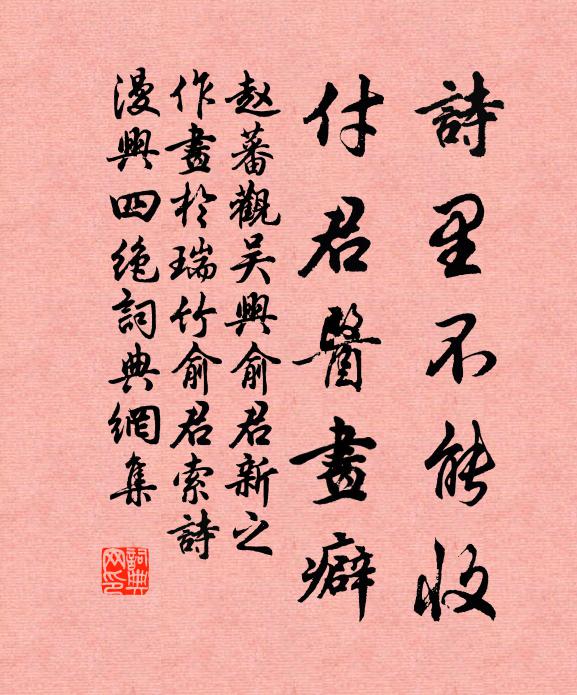 詩里不能收
付君醫畫癖
赵蕃觀吴興俞君新之
作畫於瑞竹俞君索詩
漫興四绝詞典網集
詞典网印